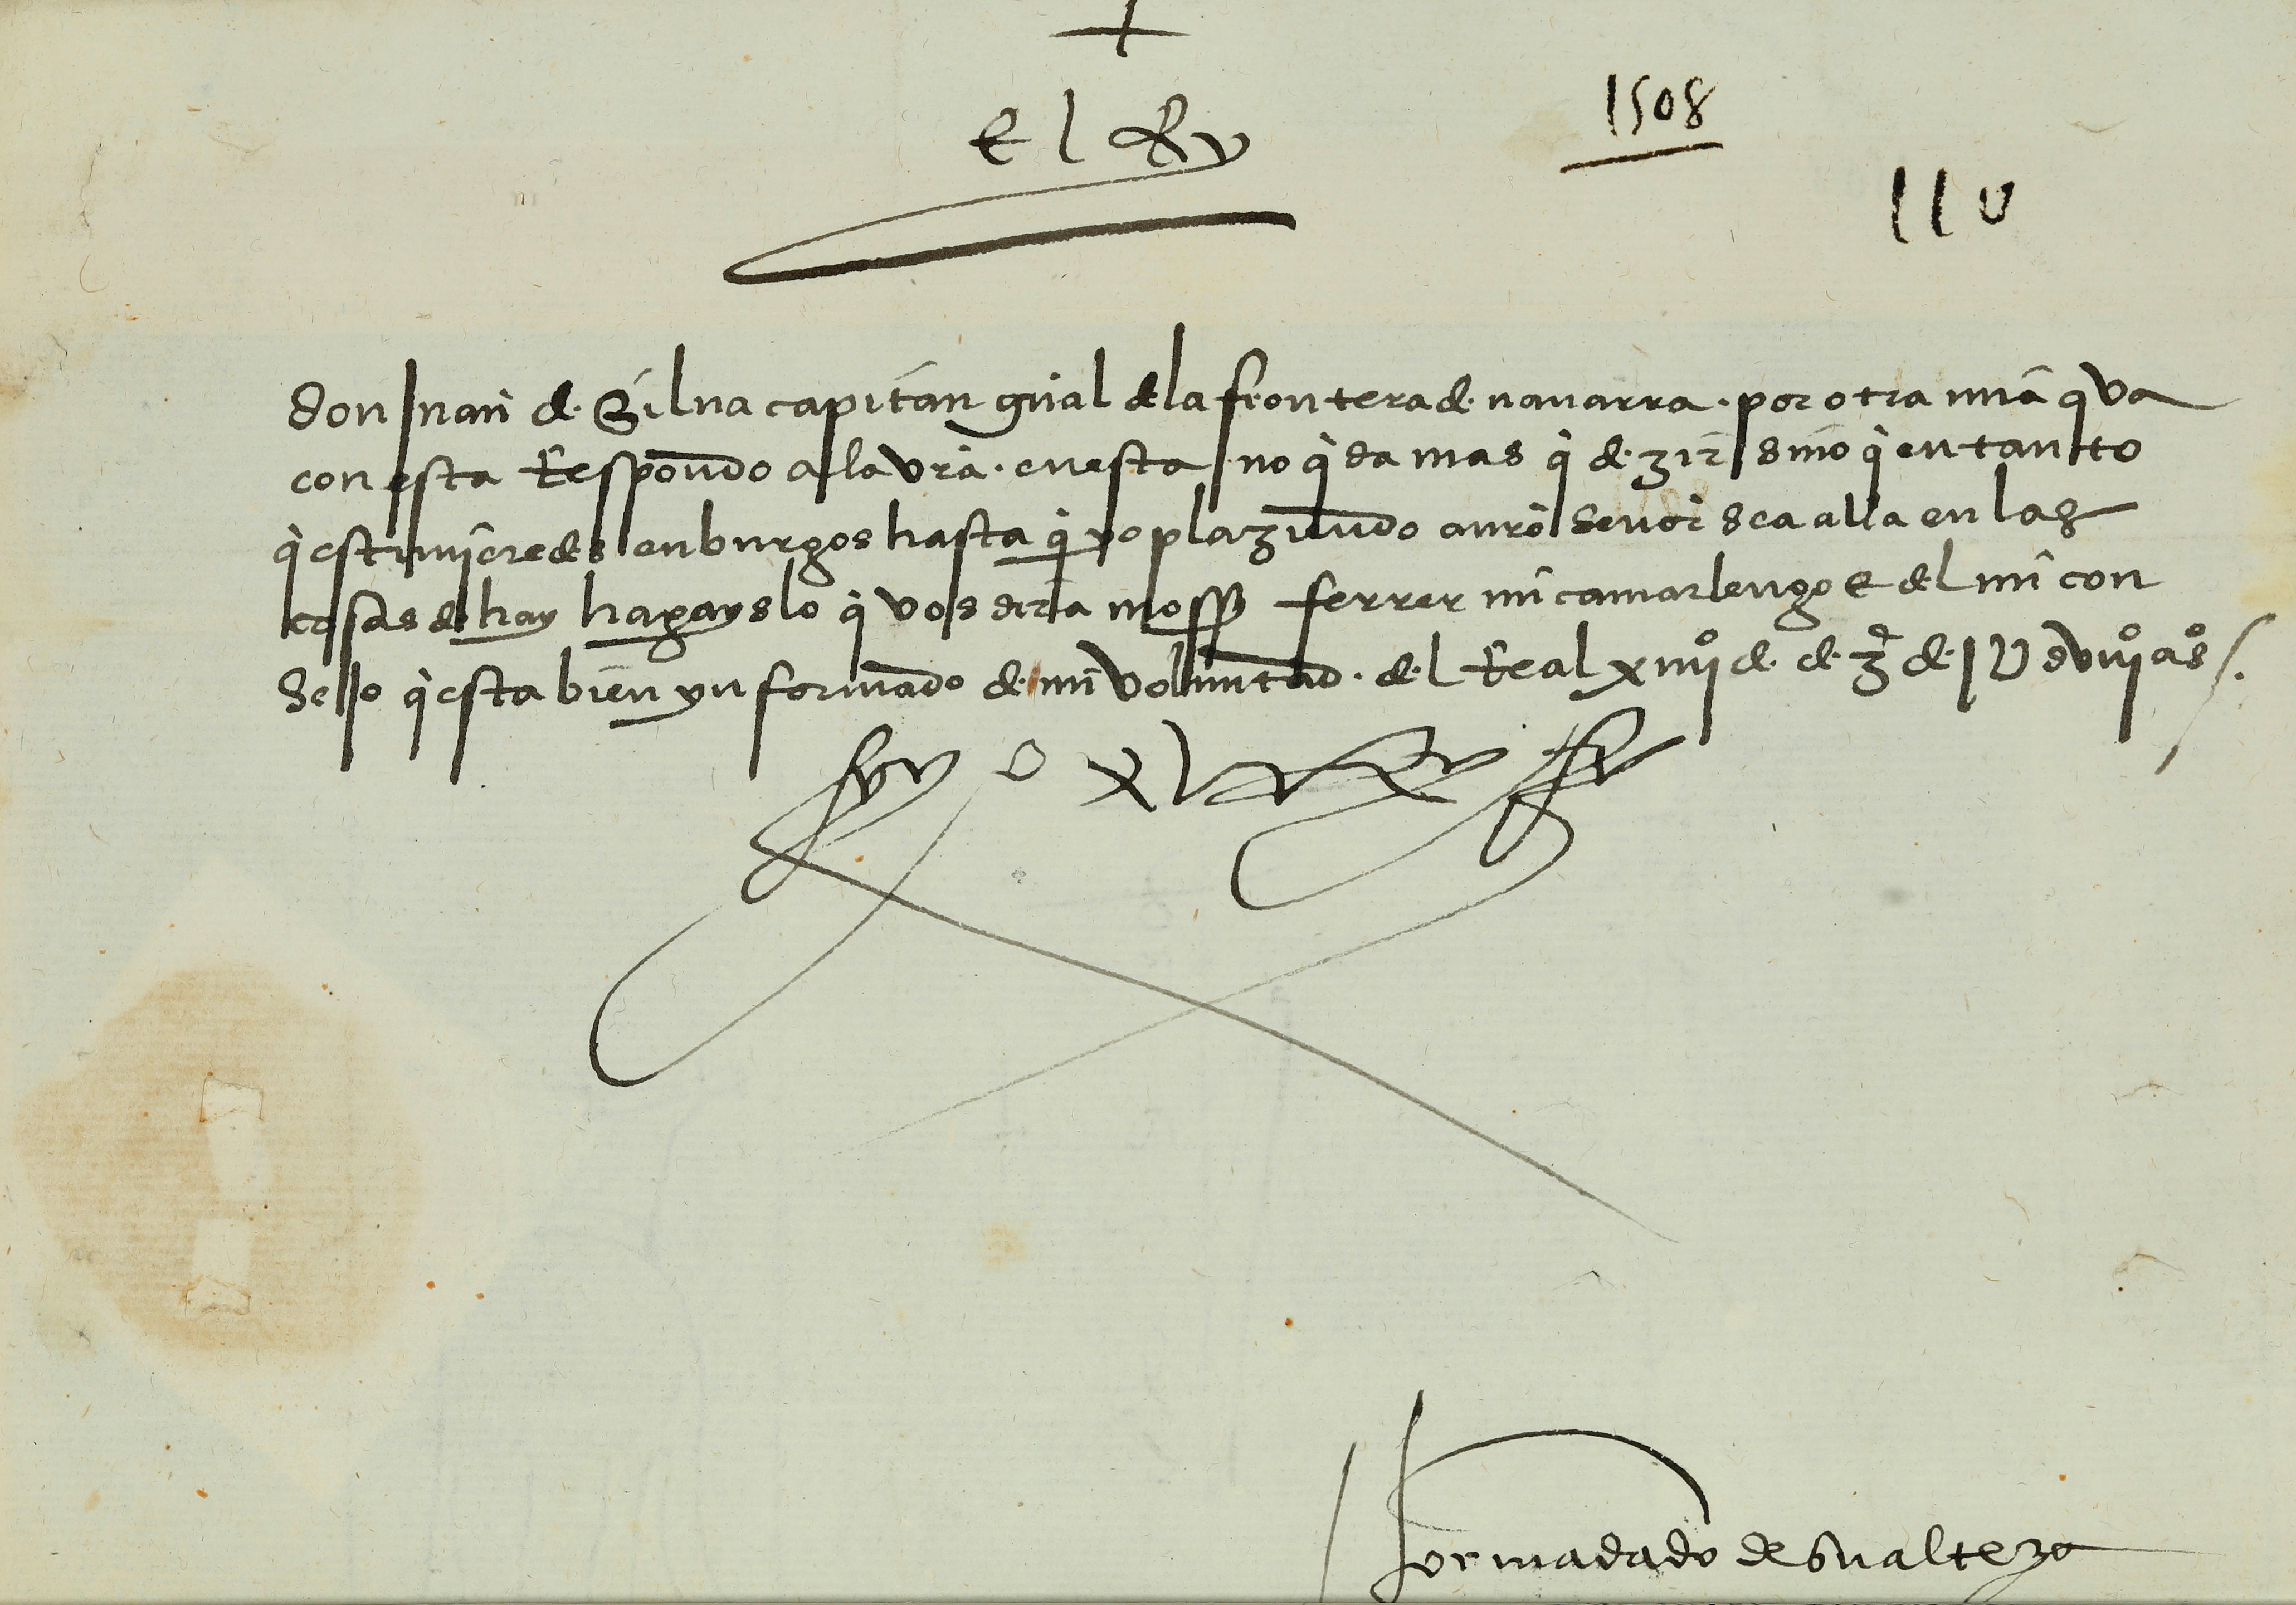 +
el Rey
1508
110
don Juan de Silua capitan gñal de la frontera de nauarra . por otra mia q va
con esta Respondo a la vrã . en esta no q̃da mas q̃ dezir sino q̃ en tanto
q̃ estuuieredes en burgos hasta q̃ yo plaziendo a nrõ señor sea alla en las
cosas de hay hagays lo q̃ vos dira moss ferrer mi camarlengo e del mi con
sejo q̃ esta bien ynformado de mi voluntad . del Real xiiijº de de zº de
yo el Rey
por mãdado de Su alteza